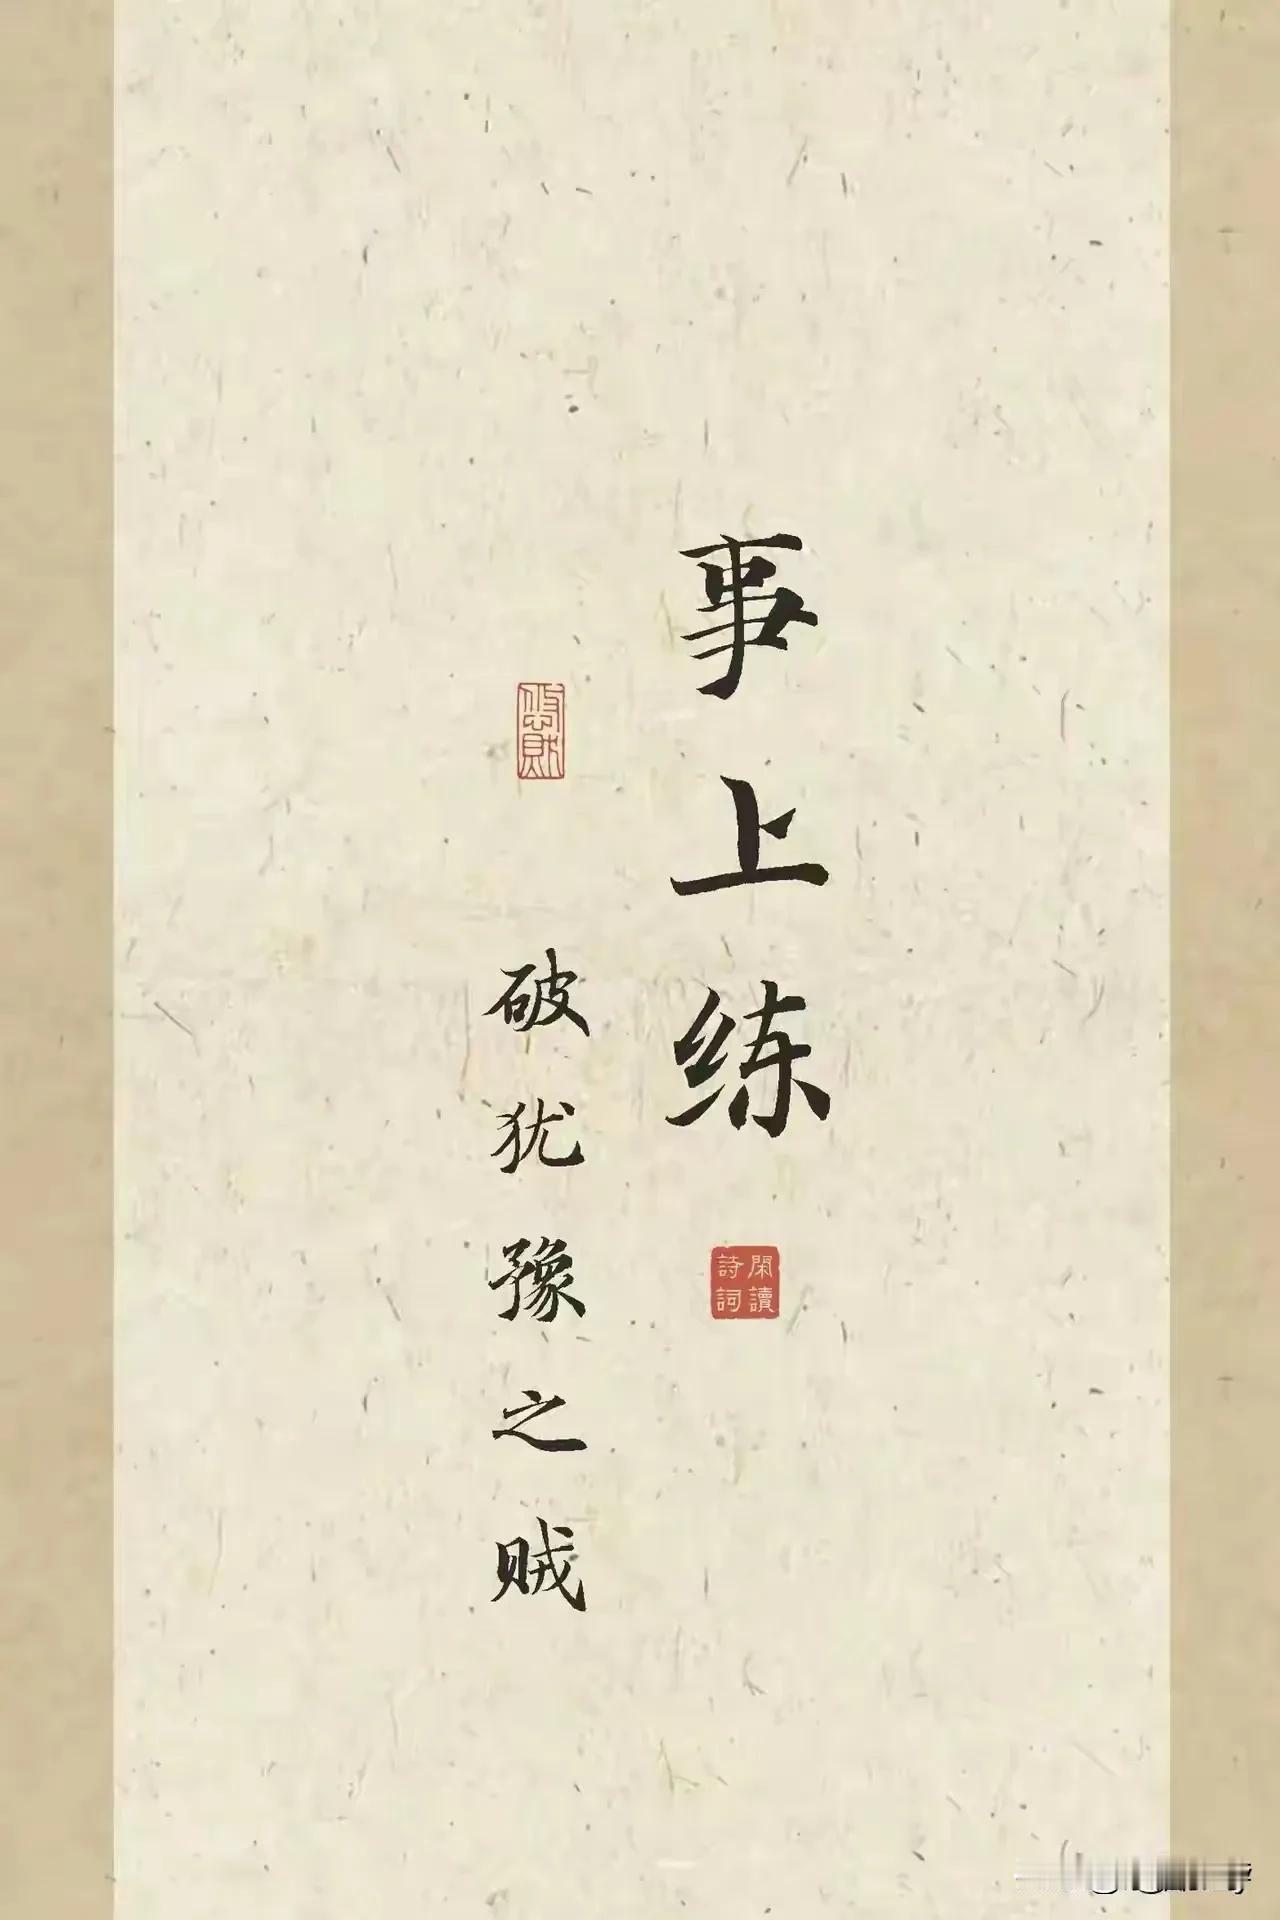 事上练
閑讀
詩詞
破犹豫之贼